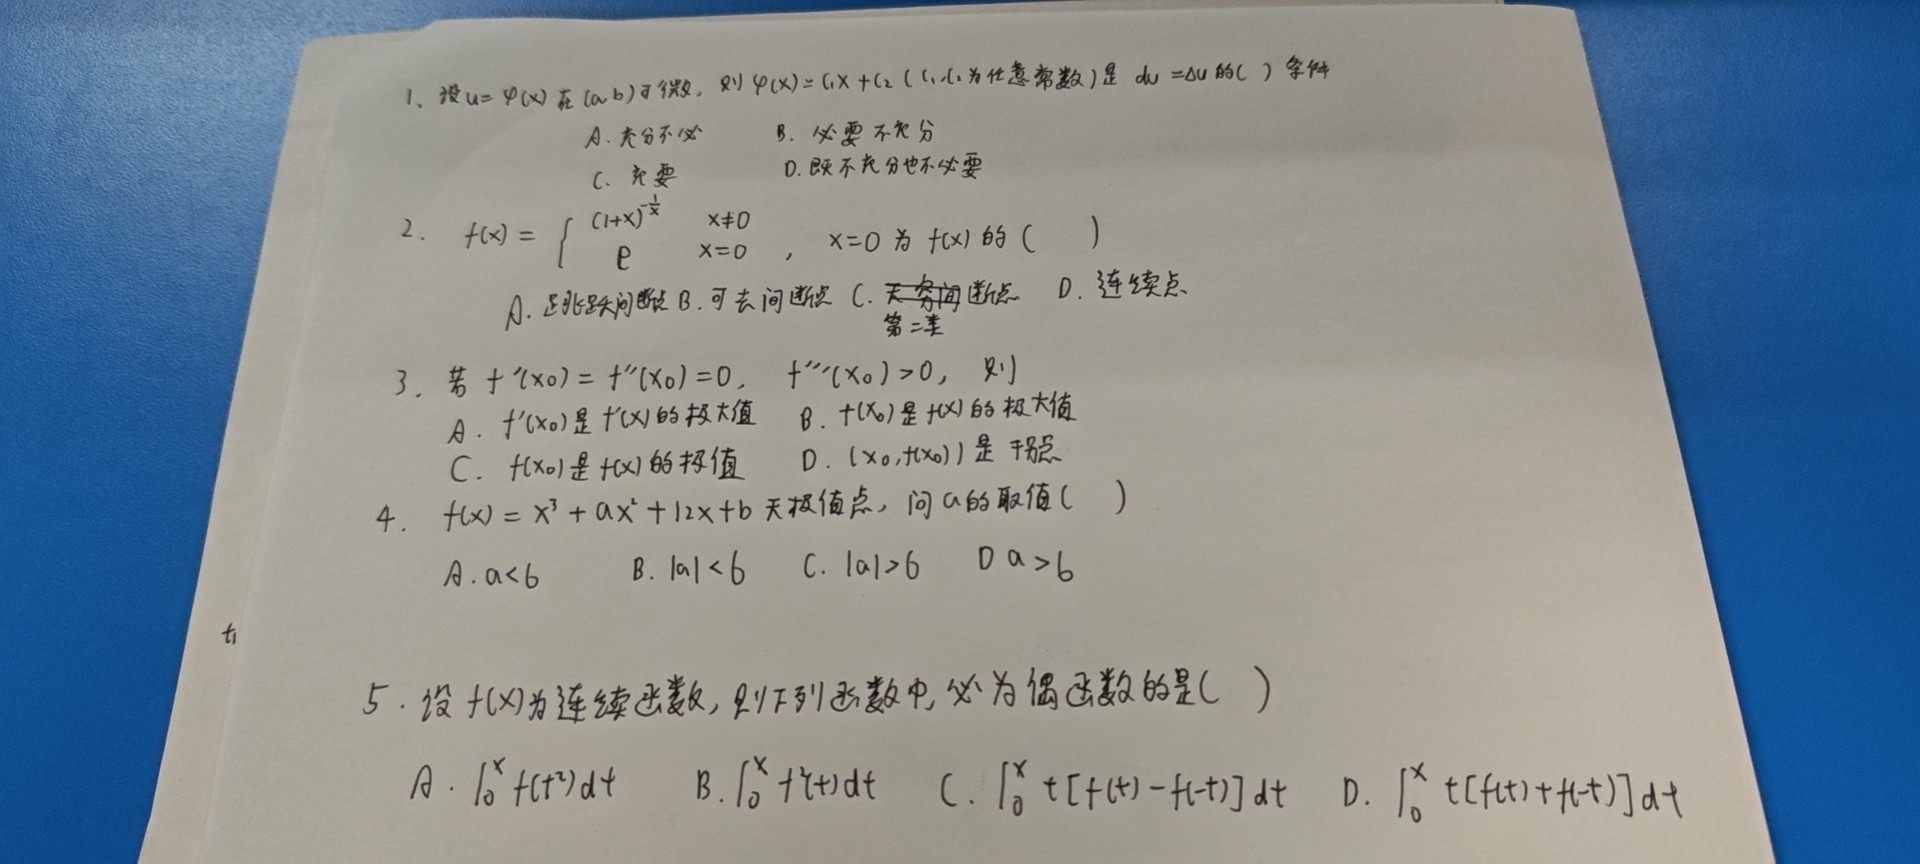 1、设u=φ(x)在(a,b)可微,则φ(x)=C₁x+C₂(C₁,C₂为任意常数)是 du=Δu的( )条件
A.充分不必 B.必要不充分
C.充要 D.既不充分也不必要
2. f(x)= { (1+x)^{-1/x} x≠0
e x=0 , x=0为f(x)的( )
A.是跳跃间断点 B.可去间断点 C. 断点 D.连续点
第二类
3.若f'(x₀)=f''(x₀)=0, f'''(x₀)>0, 则
A. f'(x₀)是f'(x)的极大值 B. f(x₀)是f(x)的极大值
C. f(x₀)是f(x)的极值 D. (x₀,f(x₀))是拐点
4. f(x)=x³+ax²+12x+b无极值点,问a的取值( )
A. a<6 B. |a|<6 C. |a|>6 D a>6
t₁
5.设f(x)为连续函数,则下列函数中,必为偶函数的是( )
A. ∫₀ˣ f(t²)dt B. ∫₀ˣ f²(t)dt C. ∫₀ˣ t[f(t)-f(-t)]dt D. ∫₀ˣ t[f(t)+f(-t)]dt